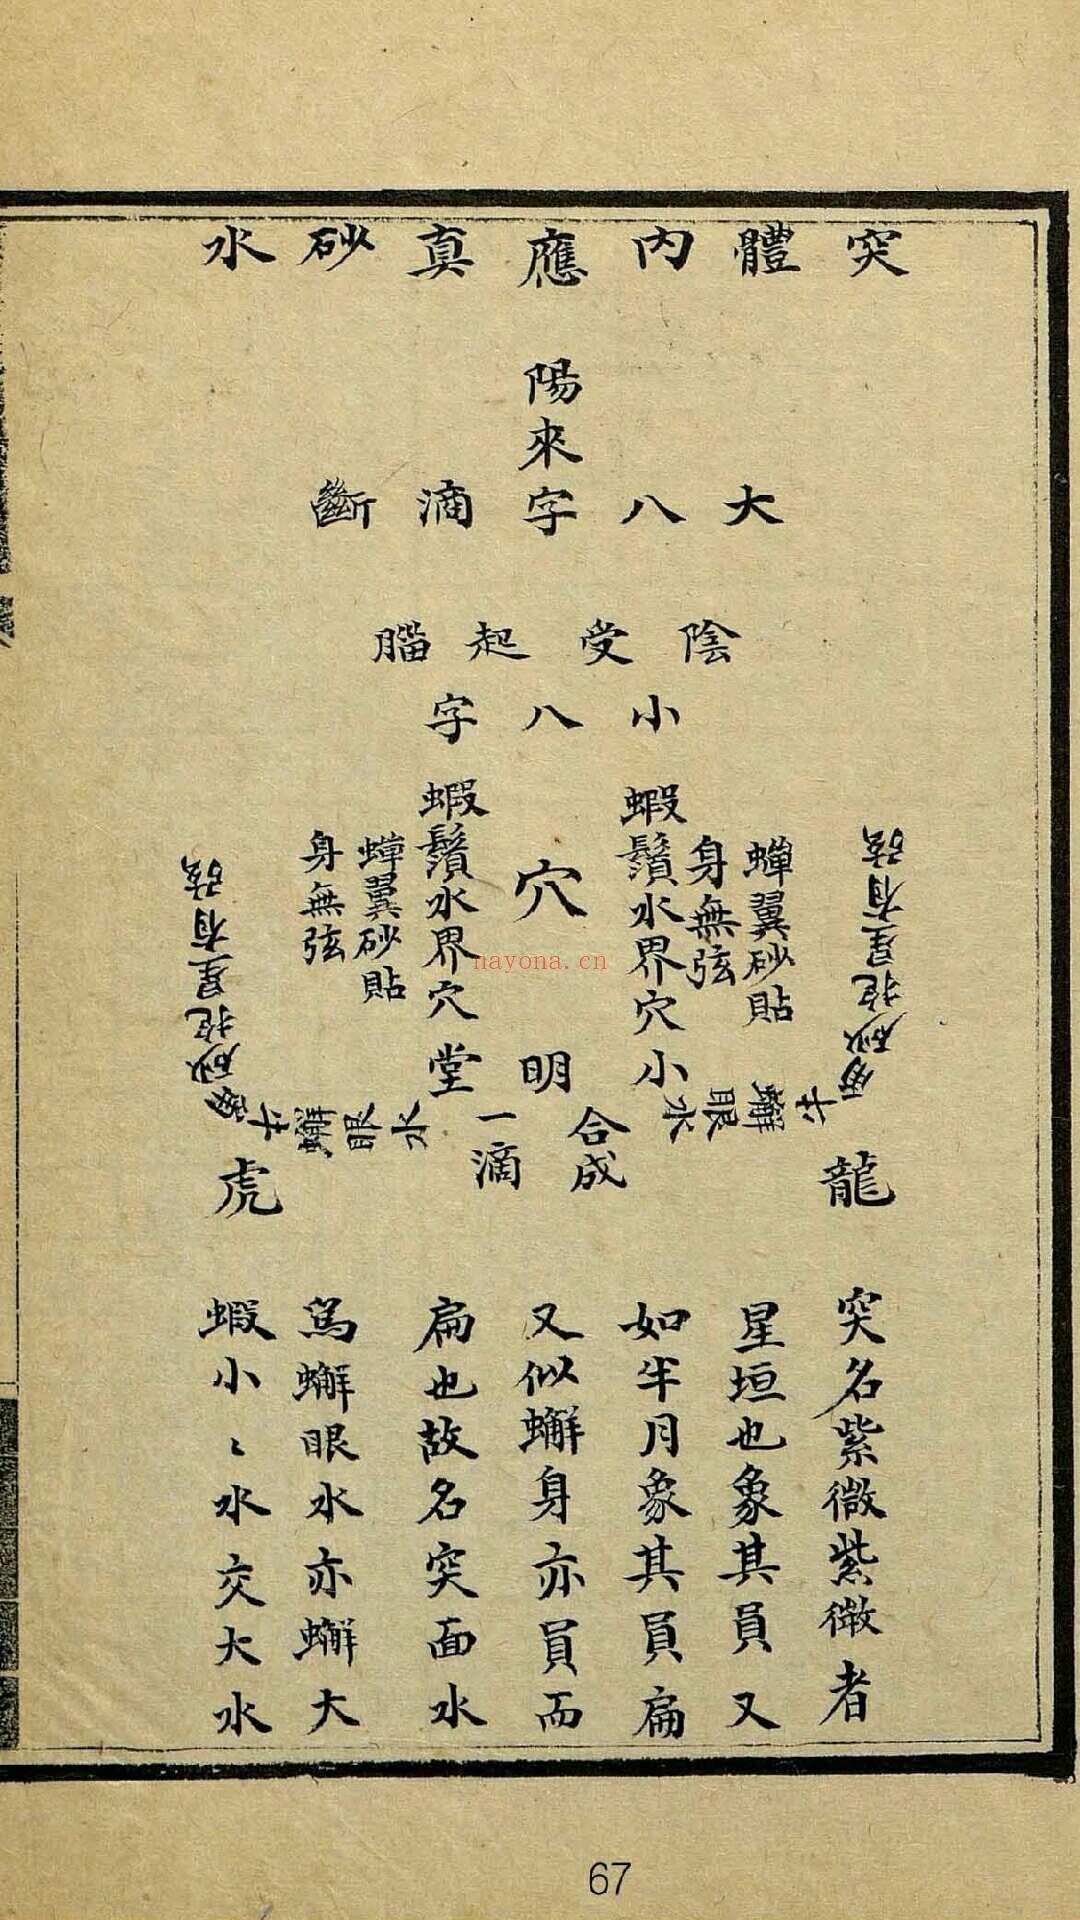 突體內應真砂水
陽來
大八字滴斷
陰受起腦
小八字
穴
蝦鬚水界穴
蝦鬚水界穴
蟬翼砂貼
身無弦
蟬翼砂貼
身無弦
砂抱星有弦
砂抱星有弦
小明堂
合成
一滴
蠏眼水
蠏眼水
龍
虎
突名紫微紫微者
星垣也象其員又
如半月象其員扁
又似蠏身亦員而
扁也故名突面水
為蠏眼水亦蠏大
蝦小〻水交大水
nayona.cn
67